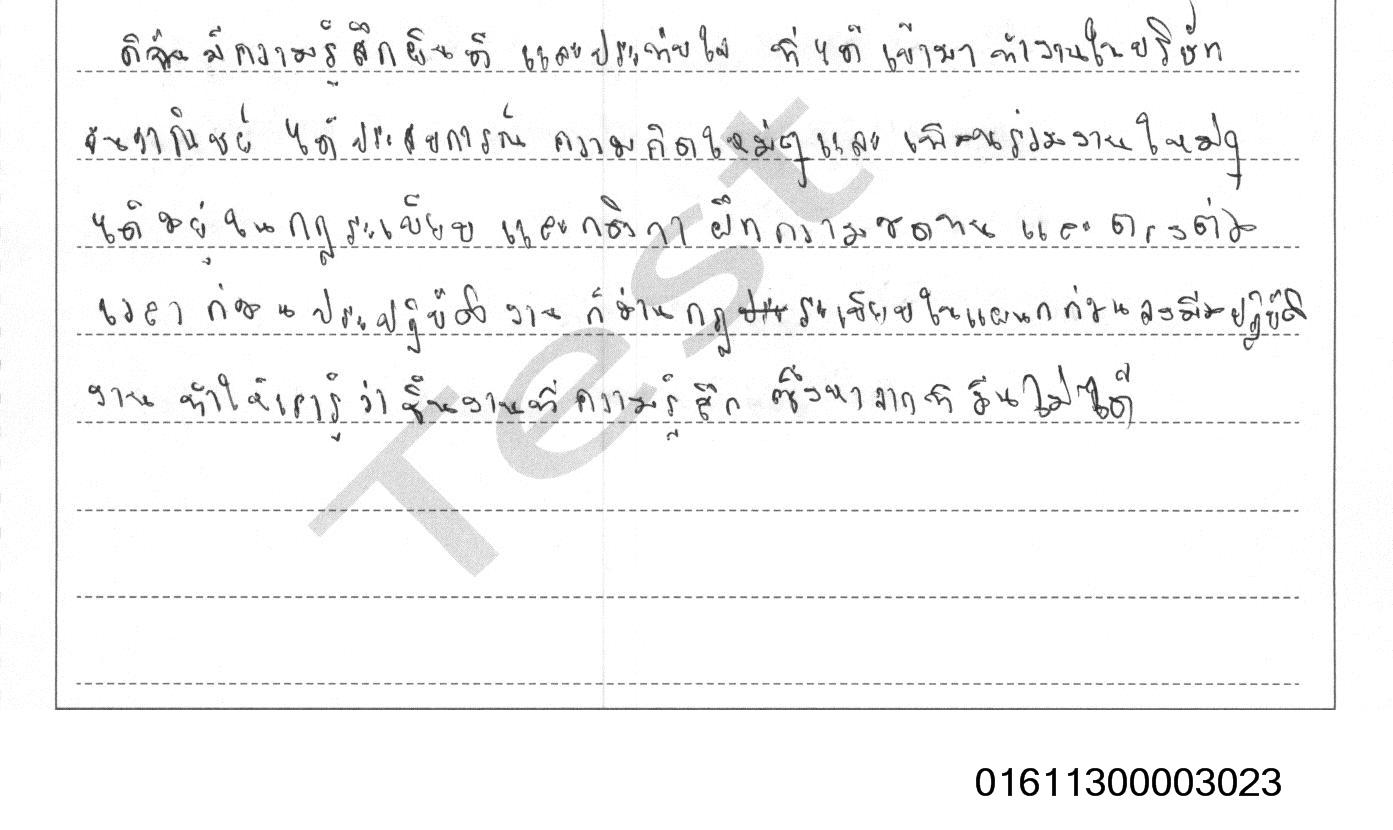 ดิฉันมีความรู้สึกยินดี และประทับใจ ที่ได้เข้ามาทำงานในบริษัท
ได้ประสบการณ์ ความคิดใหม่ๆและ เพื่อนร่วมงานใหม่ๆ
ได้อยู่ในกฎระเบียบ และกติกา ฝึกความอดทน และตรงต่อ
เวลา ก่อนประปฎิบัติงาน ก็อ่านกฎระเบียบในแผนกก่อนลงมือปฎิบัติ
งาน ทำให้เรารู้ว่าชิ้นงานที่ความรู้สึก ซึ่งหาจากที่อื่นไม่ได้
Test
01611300003023